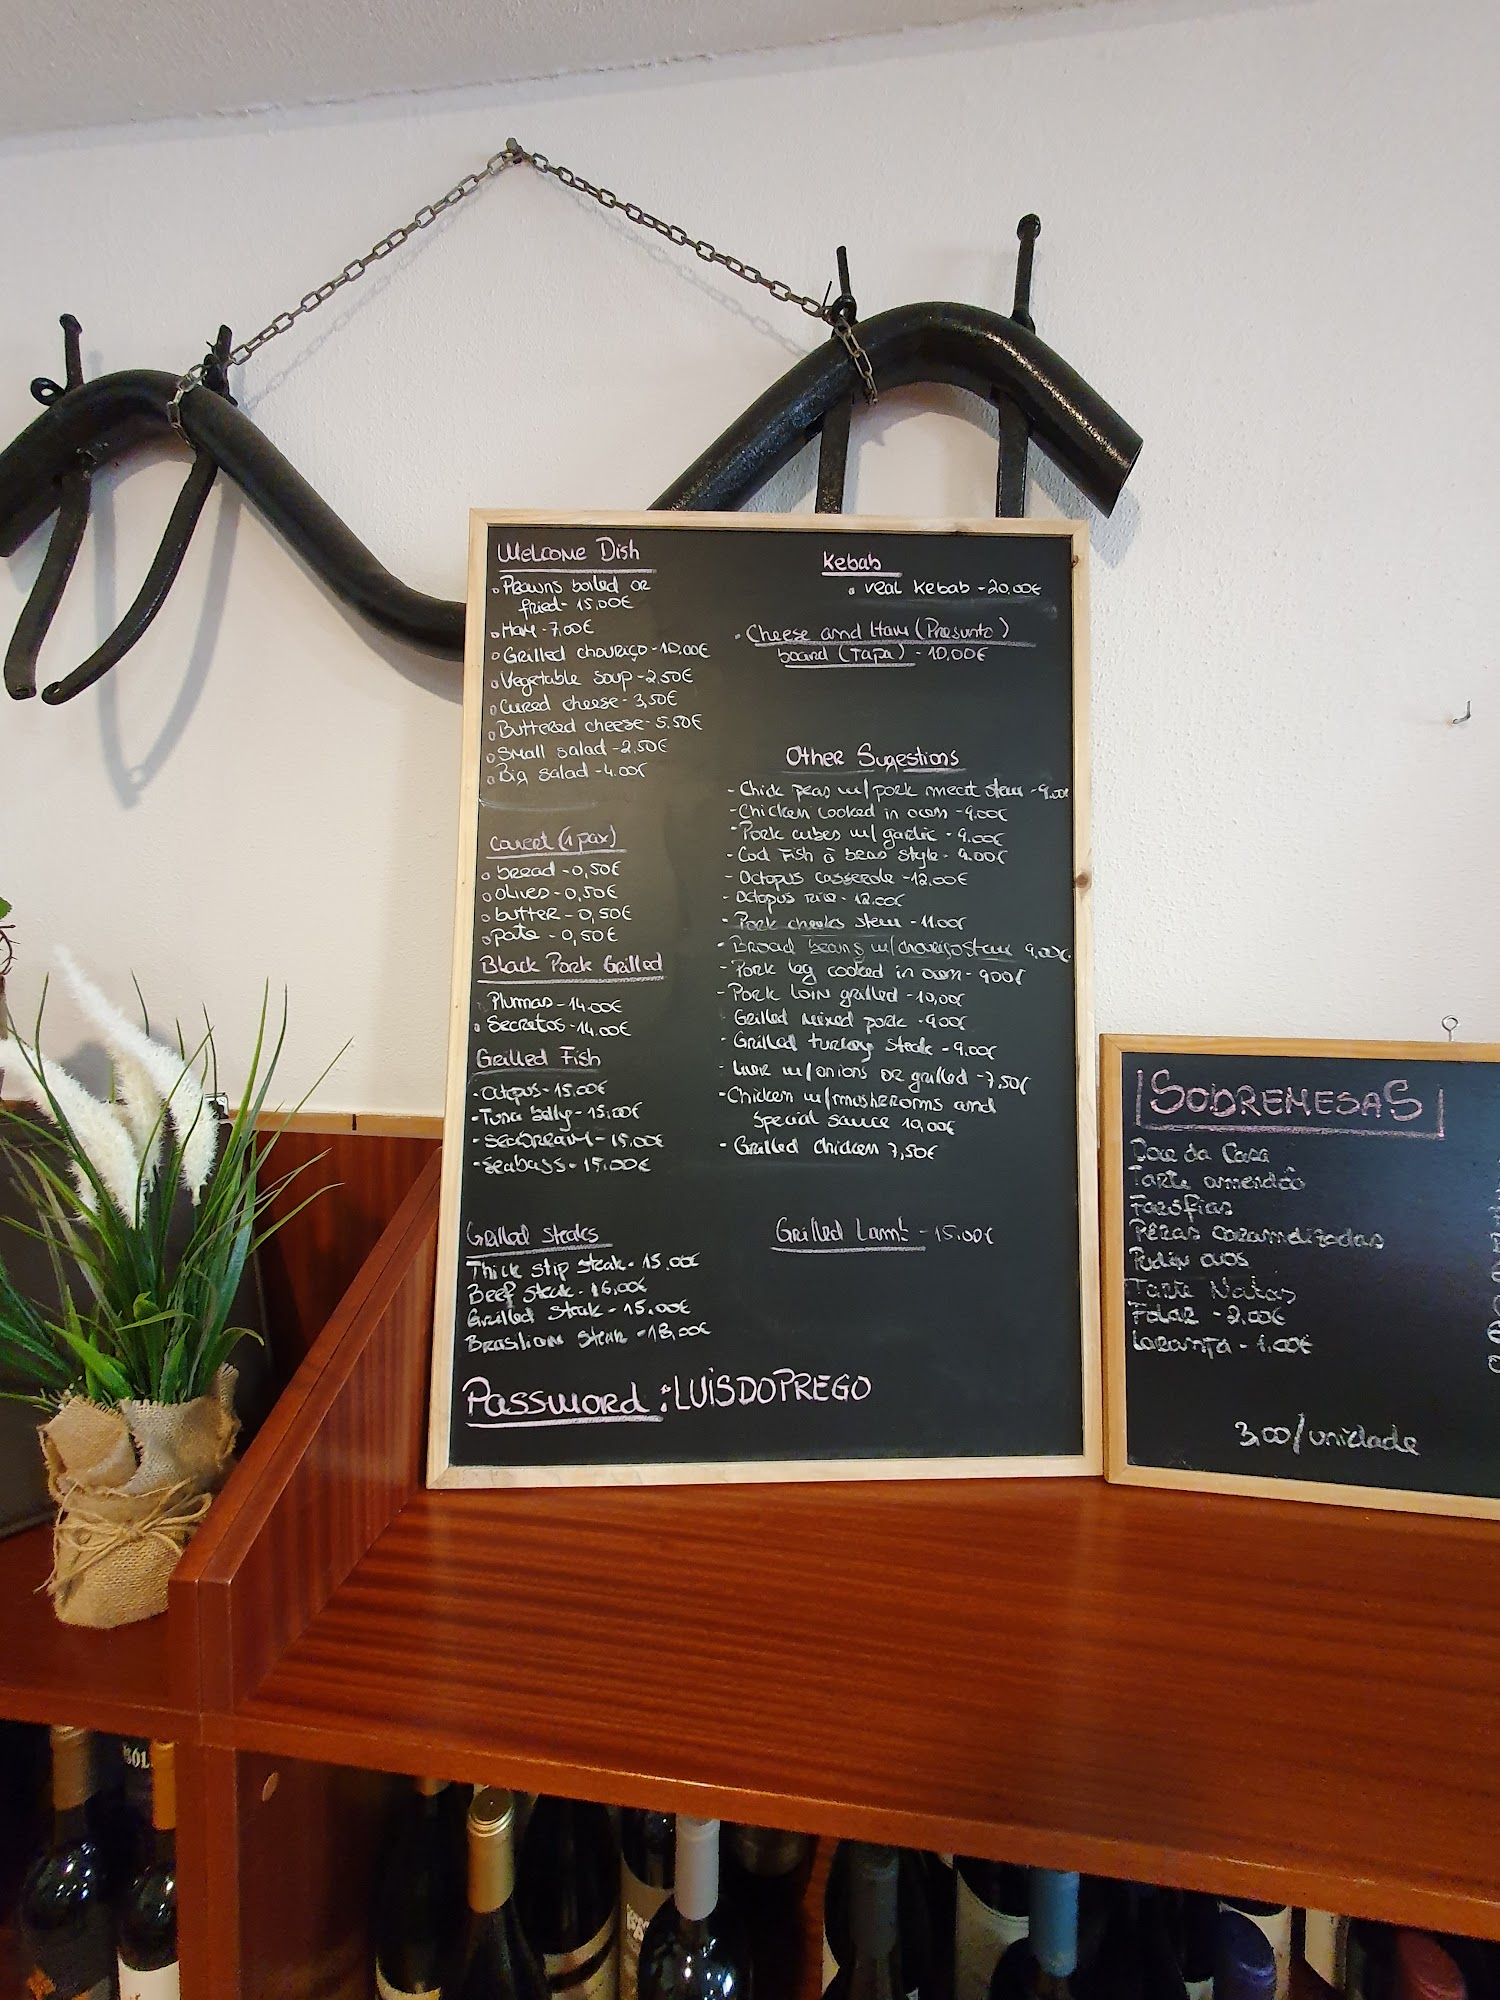 Welcome Dish
Prawns boiled or
fried - 15,00€
Ham - 7,00€
Grilled chouriço - 10,00€
Vegetable soup - 2,50€
Cured cheese - 3,50€
Buttered cheese - 5.50€
Small salad - 2,50€
Big salad - 4.00€
Couvert (1 pax)
bread - 0,50€
Olives - 0,50€
butter - 0,50€
pate - 0,50€
Black Pork Grilled
Plumas - 14.00€
Secretos - 14.00€
Grilled Fish
- Octopus - 15,00€
- Tuna belly - 15,00€
- Seabream - 15,00€
- Seabass - 15.00€
Grilled Steaks
Thick slip steak - 15.00€
Beef steak - 16,00€
Grilled steak - 15,00€
Brasilian steak - 18,00€
Kebab
veal kebab - 20,00€
Cheese and Ham (Presunto)
board (Tapa) - 10,00€
Other Sugestions
- Chick peas w/ pork meat stew - 9.00€
- Chicken cooked in oven - 9.00€
- Pork cubes w/ garlic - 9.00€
- Cod Fish à bras style - 9.00€
- Octopus casserole - 12.00€
- Octopus rice - 12.00€
- Pork cheeks stew - 11.00€
- Broad beans w/ chouriço stew 9,00€
- Pork leg cooked in oven - 900€
- Pork loin grilled - 10,00€
Grilled mixed pork - 900€
- Grilled turkey steak - 9.00€
- Liver w/ onions or grilled - 7,50€
- Chicken w/ musherooms and
special sauce 10,00€
- Grilled chicken 7,50€
Grilled Lamb - 15.00€
Password : LUISDOPREGO
SOBREMESAS
Doce da Casa
Tarte amendôo
Farófias
Pêras caramelizadas
Pudim ovos
Tarte Natas
Folar - 2,00€
Laranja - 1,00€
3,00/unidade